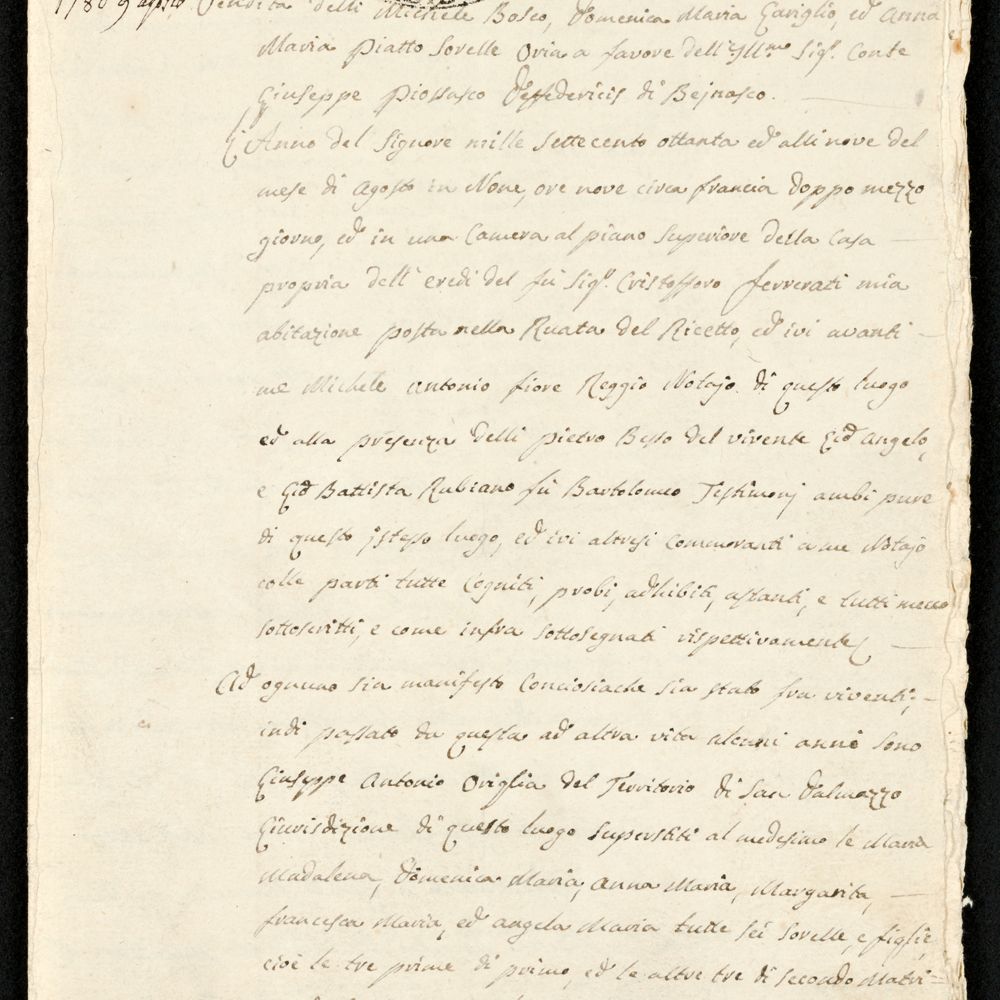 1780 9 agosto Vendita delli Michele Bosco, Domenica Maria Gariglio, ed Anna
Maria Piatto Sorelle Oria a favore dell'Ill.mo Sig.r Conte
Giuseppe Piossasco Deffedericis di Bejnasco.
L'Anno del Signore mille settecento ottanta ed alli nove del
mese di Agosto in None, ore nove circa francia doppo mezzo
giorno, ed in una Camera al piano superiore della Casa
propria dell' eredi del fù Sig.r Cristofforo ferrerati mia
abitazione posta nella Ruata del Ricetto, ed ivi avanti
me Michele Antonio fiore Reggio Notajo di questo luogo
ed alla presenza delli pietro Besso del vivente Gio Angelo,
e Gio Battista Rubiano fù Bartolomeo Testimonj ambi pure
di questo istesso luogo, ed ivi altresi Commoranti a me Notajo
colle parti tutte Cogniti, probi, adhibiti, astanti, e tutti meco
sottoscritti, e come infra sottosegnati rispettivamente
Ad ognuno sia manifesto Conciosiache sia stato fra viventi,
indi passato da questa ad altra vita alcuni anni sono
Giuseppe Antonio Origlia del Territorio di San Dalmazzo
Giurisdizione di questo luogo superstiti al medesimo le Maria
Madalena, Domenica Maria, Anna Maria, Margarita,
francesca Maria, ed angela Maria tutte sei sorelle, e figlie,
cioè le tre prime di primo, ed le altre tre di secondo Matri=